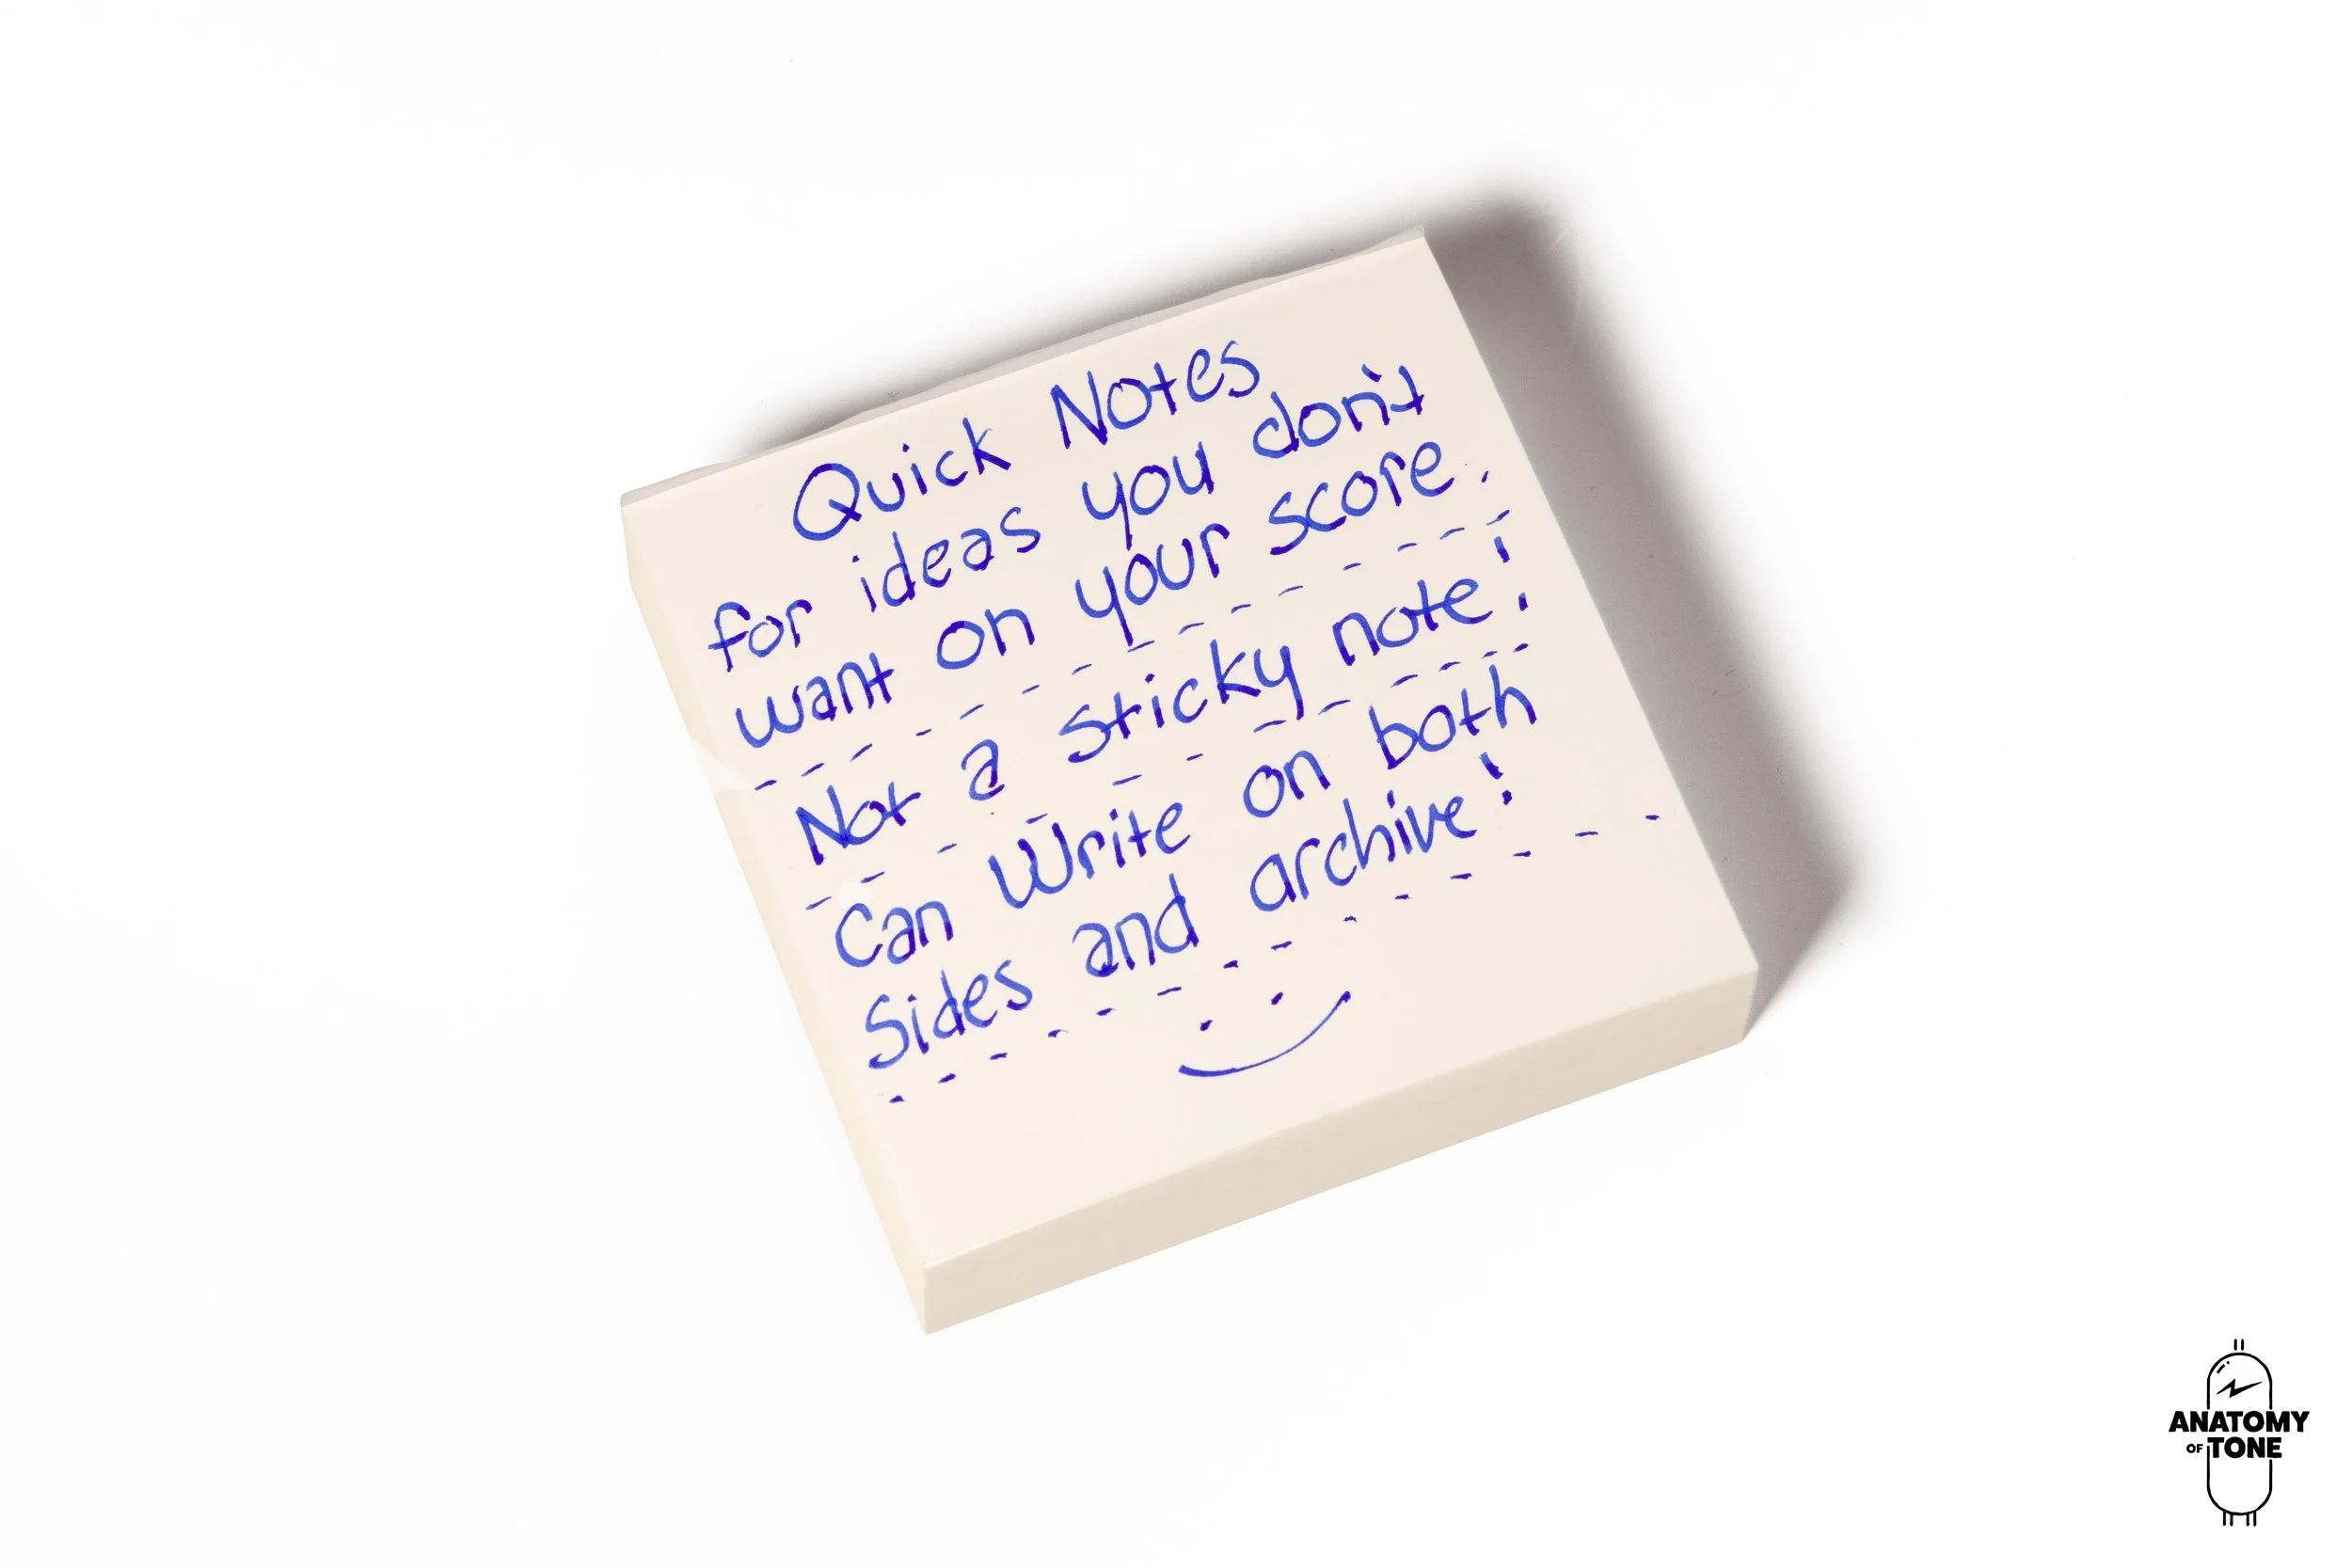 Quick Notes
for ideas you don't
want on your score.
Not a sticky note!
Can Write on both
Sides and archive!
ANATOMY
OF TONE